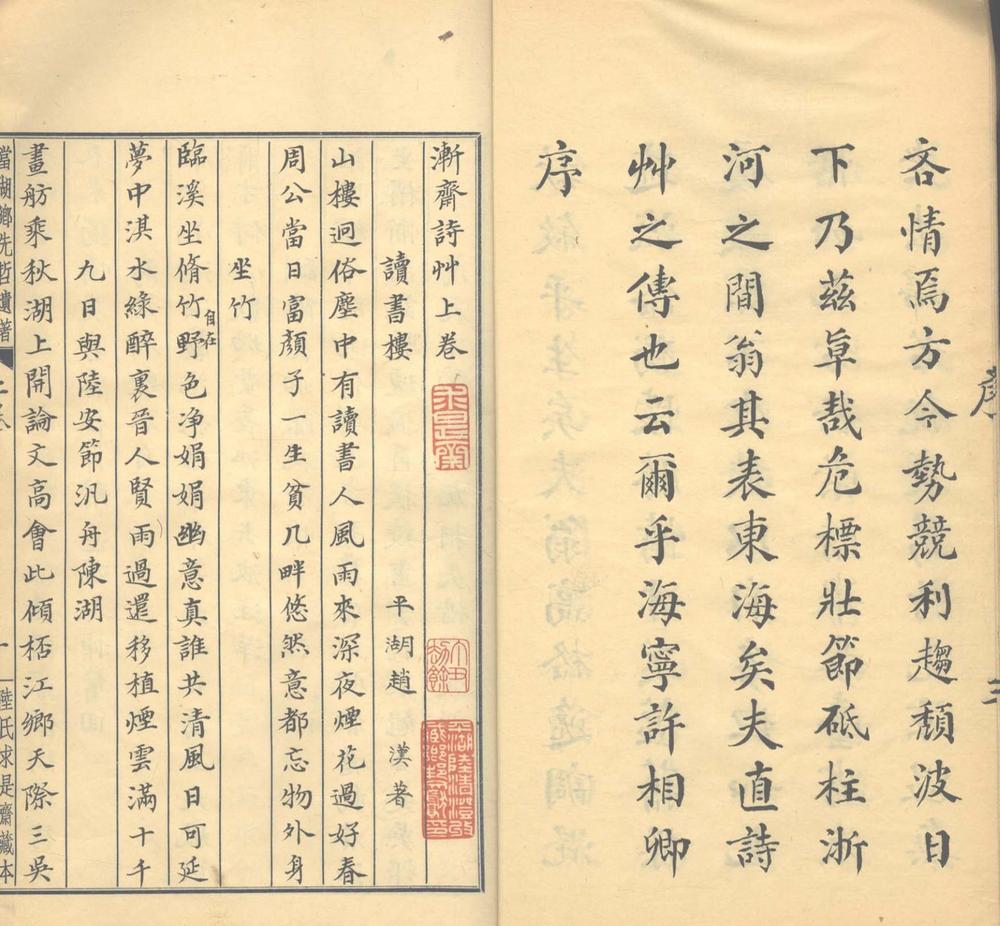 序
三
吝情焉方今勢競利趨頽波日
下乃茲卓哉危標壯節砥柱浙
河之間翁其表東海矣夫直詩
艸之傳也云爾乎海寧許相卿
序
漸齋詩艸上卷
求是齋
讀書樓　平湖趙漢著
山樓迥俗塵中有讀書人風雨來深夜煙花過好春
周公當日富顏子一生貧几畔悠然意都忘物外身
坐竹
臨溪坐脩竹野自在色净娟娟幽意真誰共清風日可延
夢中淇水綠醉裏晉人賢雨過還移植煙雲滿十千
九日與陸安節汎舟陳湖
畫舫乘秋湖上開論文高會此傾桮江鄉天際三吳
當湖鄉先哲遺著
上卷
一
陸氏求是齋藏本